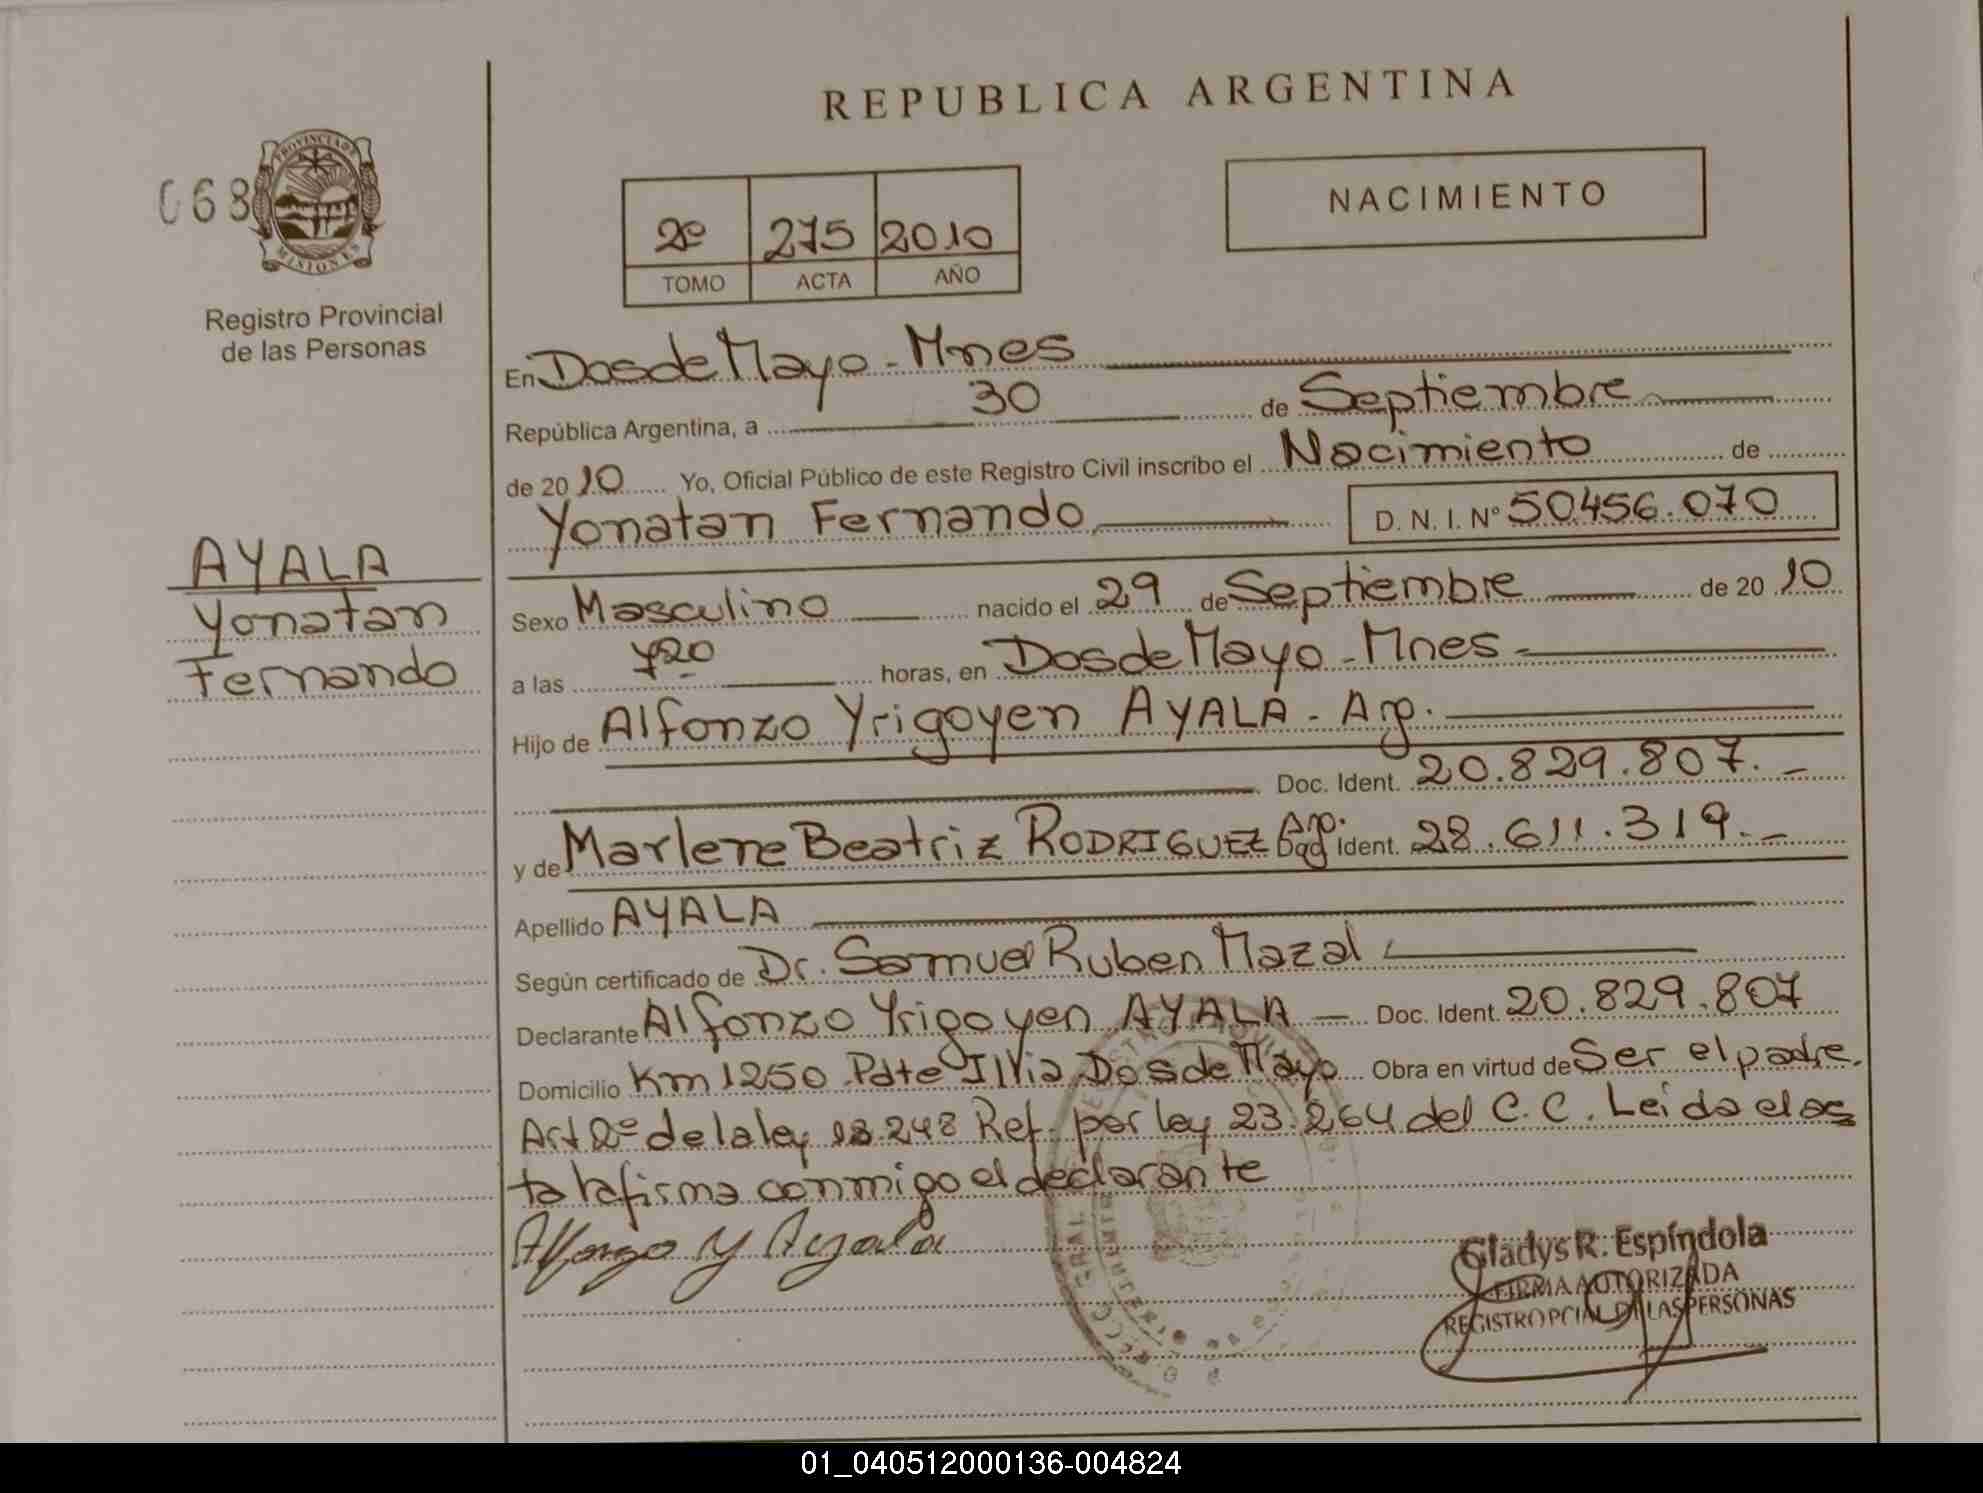 REPUBLICA ARGENTINA
068
PROVINCIA DE
MISIONES
Registro Provincial
de las Personas
2º 275 2010
TOMO ACTA AÑO
NACIMIENTO
En Dos de Mayo - Mnes
República Argentina, a 30 de Septiembre
de 2010 Yo, Oficial Público de este Registro Civil inscribo el Nacimiento de
Yonatan Fernando D. N. I. Nº 50.456.070
AYALA
Yonatan
Fernando
Sexo Masculino nacido el 29 de Septiembre de 2010
a las 720 horas, en Dos de Mayo - Mnes
Hijo de Alfonzo Yrigoyen AYALA - Arg.
Doc. Ident. 20.829.807.-
y de Marlene Beatriz RODRIGUEZ Arg. Doc. Ident. 28.611.319.-
Apellido AYALA
Según certificado de Dr. Samuel Ruben Mazal
Declarante Alfonzo Yrigoyen AYALA - Doc. Ident. 20.829.807
Domicilio Km 1250 Pdte Illia Dos de Mayo Obra en virtud de Ser el padre.
Art 2º de la ley 18.248 Ref. por ley 23.264 del C.C. Leida el ac
ta la firma conmigo el declarante
Alfonzo Y Ayala
Gladys R. Espíndola
FIRMA AUTORIZADA
REGISTRO PCIAL DE LAS PERSONAS
01_040512000136-004824